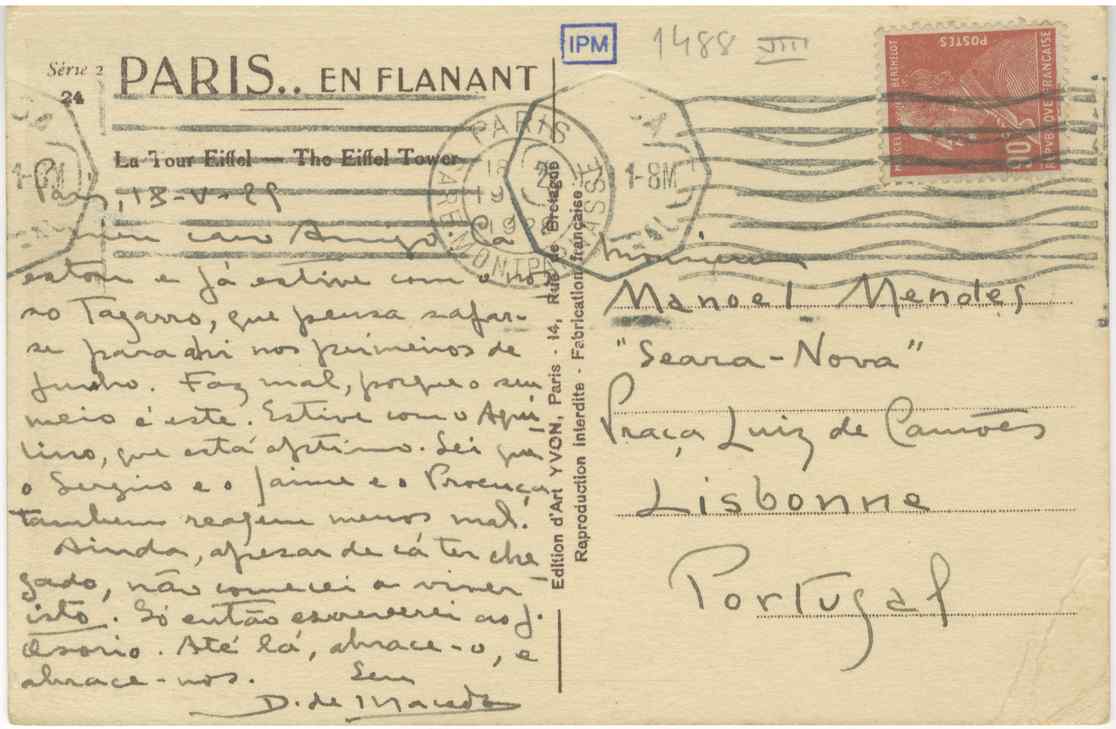 IPM
1488 VIII
Série 2
24
PARIS.. EN FLANANT
La Tour Eiffel — The Eiffel Tower
Paris, 18-V-29
meu caro Amigo. Cá
estou e já estive com o nos
so Tagarro, que pensa safar-
se para ahi nos primeiros de
Junho. Faz mal, porque o seu
meio é este. Estive com o Aqui
lino, que está optimo. Sei que
o Sergio e o Jaime e o Proença
tambem reagem menos mal.
Ainda, apesar de cá ter che
gado, não comecei a viver
isto. Só então escreverei ao J.
Osorio. Até lá, abrace-o, e
abrace-nos. Seu
D. de Macedo
Edition d'Art YVON, Paris - 14, Rue de Bretagne
Reproduction Interdite - Fabrication française
PARIS
GARE MONTPARNASSE
18
1-8M
1-8M
POSTES
BERTHELOT
REPVBLIQVE FRANÇAISE
90c
Monsieur
Manoel Mendes
"Seara-Nova"
Praça Luiz de Camões
Lisbonne
Portugal